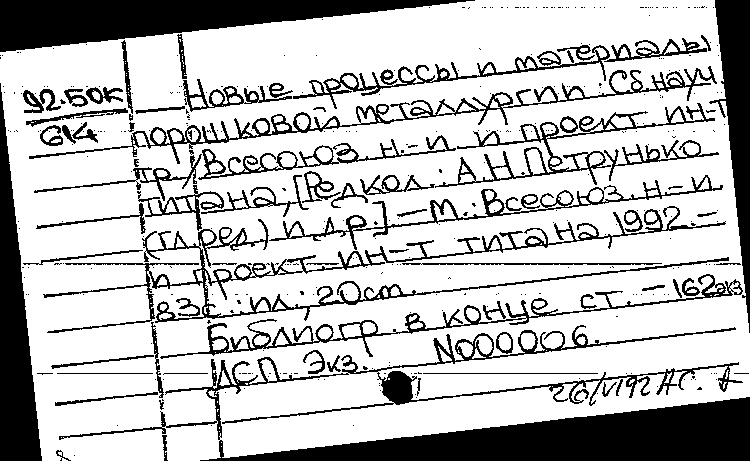 92.50к
614
Новые процессы и материалы
порошковой металлургии: Сб. науч.
тр. / Всесоюз. н.-и. и проект. ин-т
титана; [Редкол.: А.Н.Петрунько
(гл.ред.) и др.] — М.: Всесоюз. н.-и.
и проект. ин-т титана, 1992. –
83с.: ил.; 20cm.
Библиогр. в конце ст. – 162экз
ДСП. Экз. N000006.
26/VI92 АС.